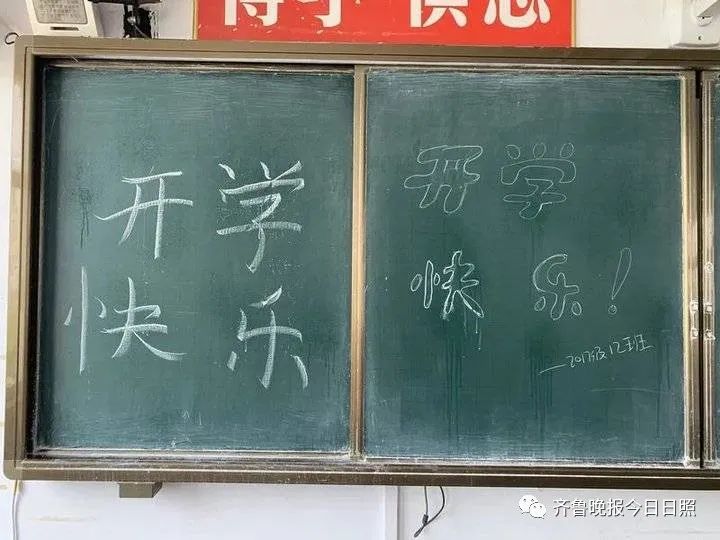 开学
快乐
开学
快乐！
—2017级12班
齐鲁晚报今日日照